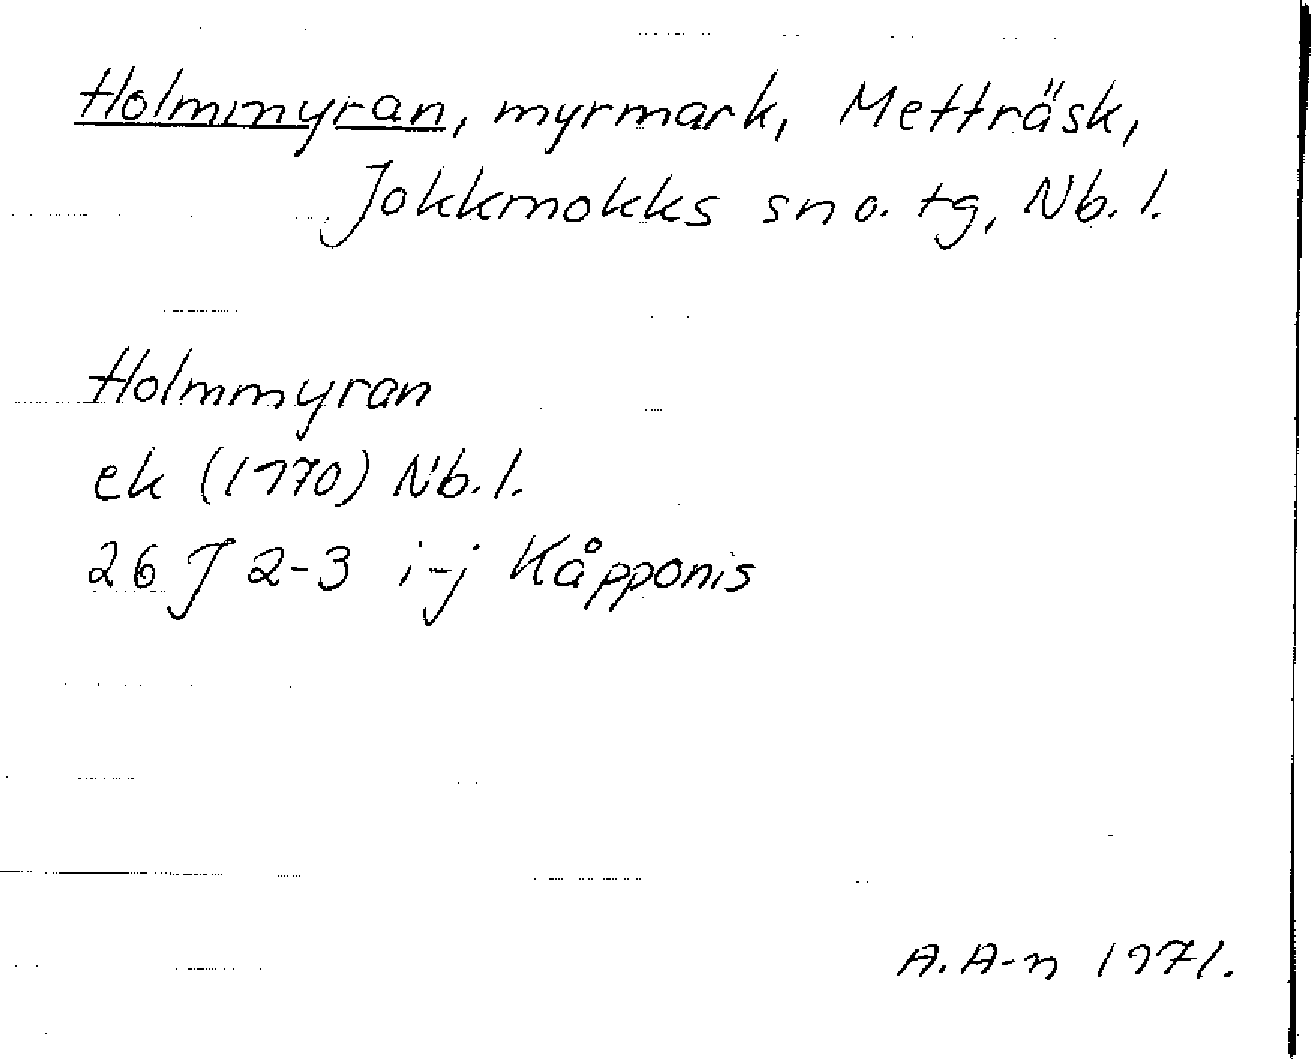 Holmmyran, myrmark, Metträsk,
Jokkmokks sn o. tg, Nb. l.
Holmmyran
ek (1970) Nb. l.
26 J 2-3 i-j Kåpponis
A. A-n 1971.